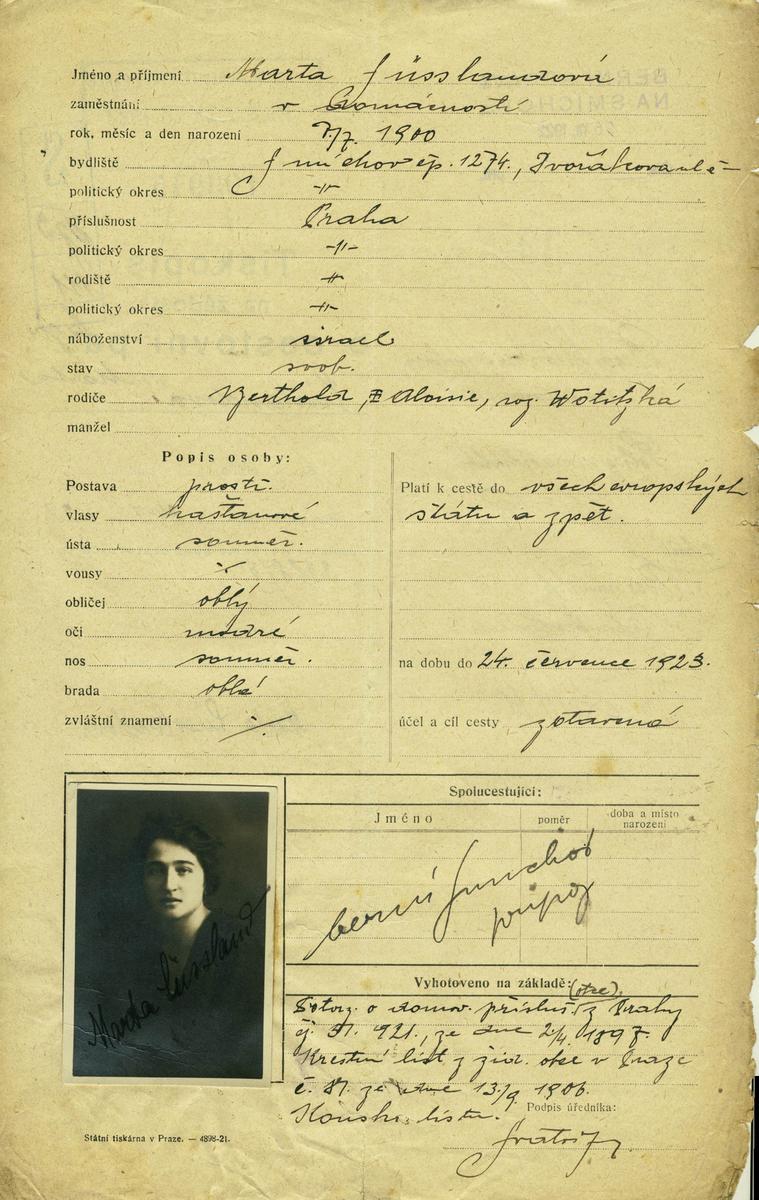 Jméno a příjmení Marta Süsslandová
zaměstnání v domácnosti
rok, měsíc a den narození 7/7. 1900
bydliště Smíchov čp. 1274., Dvořákova ul
politický okres -"-
příslušnost Praha
politický okres -"-
rodiště -"-
politický okres -"-
náboženství israel
stav svob.
rodiče Berthold, Aloisie, roz. Wotitzká
manžel
Popis osoby:
Postava prostř.
vlasy kaštanové
ústa souměr.
vousy ./.
obličej oblý
oči modré
nos souměr.
brada oblá
zvláštní znamení ./.
Platí k cestě do všech evropských
států a zpět.
na dobu do 24. července 1923.
účel a cíl cesty zotavená
Spolucestující:
Jméno poměr doba a místo narození
berní Smíchov
Marta Süssland
Vyhotoveno na základě: (otce)
Potvrz. o domov. přísluš. z Prahy
čj. 921., ze dne 2/4. 1897.
Křestní list z žid. obce v Praze
č. ze dne 13./9. 1906.
listu.
Podpis úředníka:
Státní tiskárna v Praze. — 4898-21.